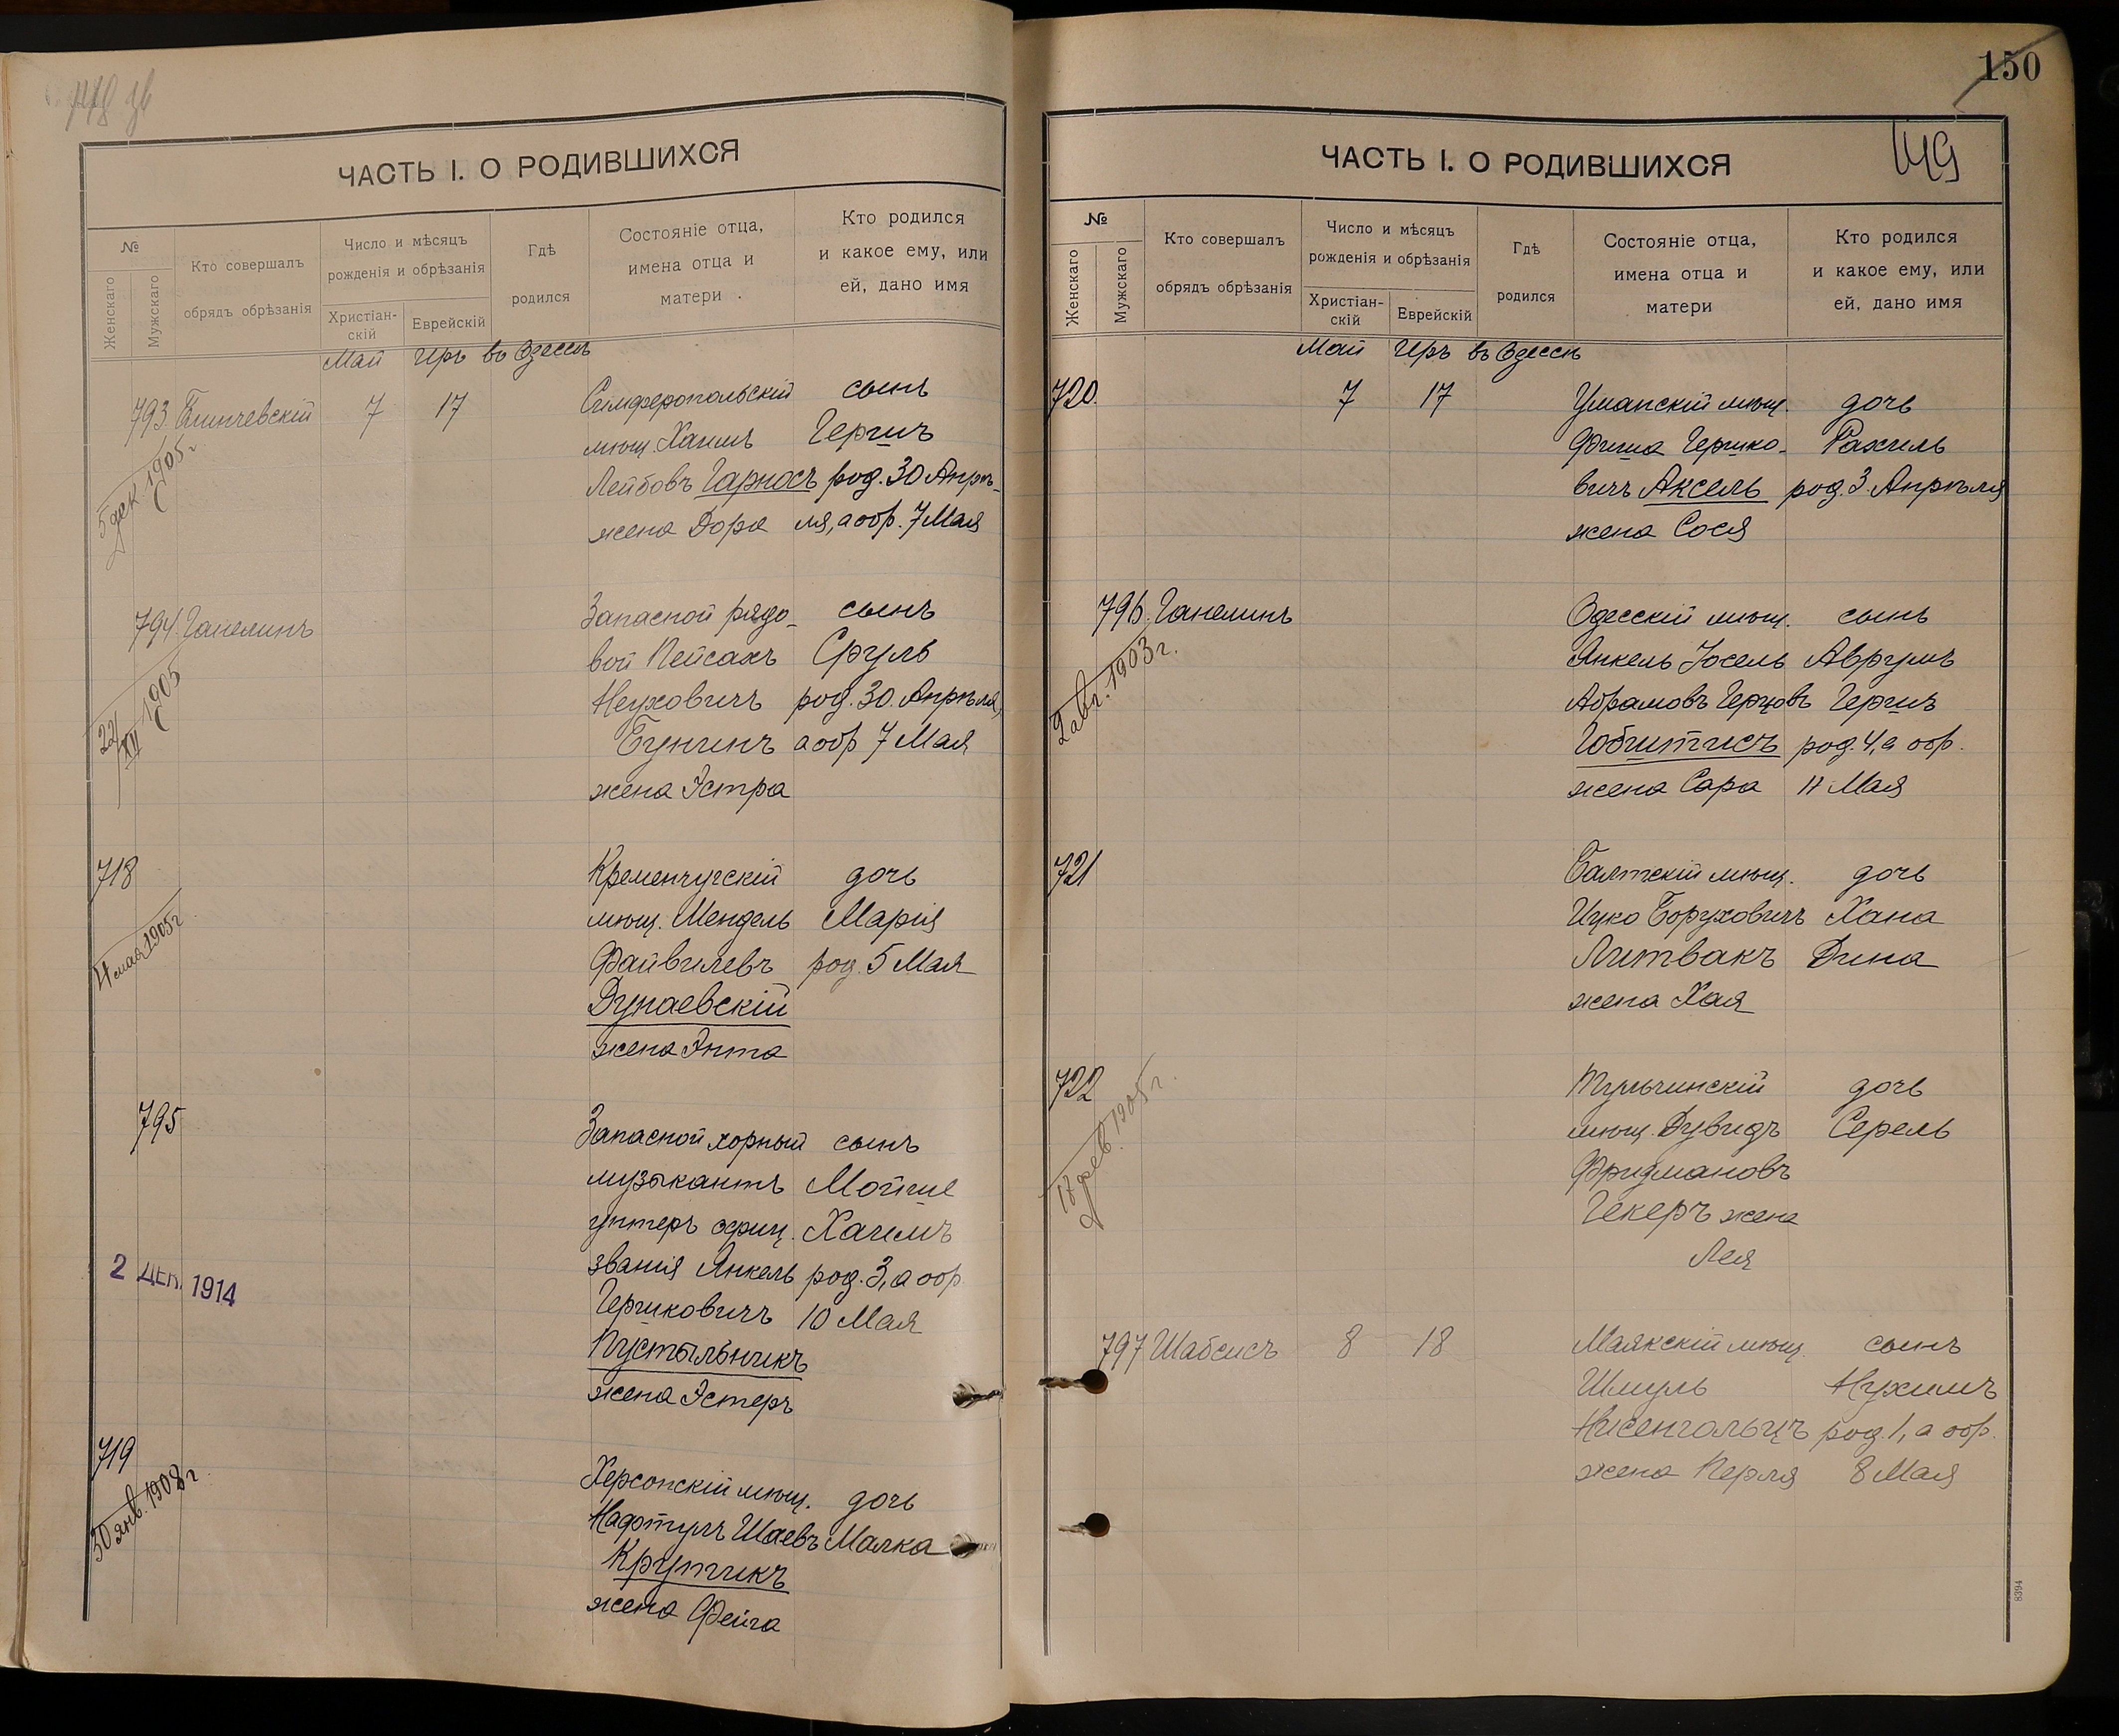 ЧАСТЬ I. О РОДИВШИХСЯ
№
Женскаго
Мужскаго
Кто совершалъ
обрядъ обрѣзанія
Число и мѣсяцъ
рожденія и обрѣзанія
Христіан-
скій
Еврейскій
Гдѣ
родился
Состояніе отца,
имена отца и
матери
Кто родился
и какое ему, или
ей, дано имя
Май Иръ въ Одессѣ
793 7 17 Симферопольскій сынъ
мѣщ. Хаимъ Гершъ
Лейбовъ Гарносъ род. 30 Апрѣ-
жена Дора ля, а обр. 7 Мая
5 дек. 1905 г
794. Ганелинъ Запасной рядо- сынъ
вой Пейсахъ Сруль
Неуховичъ род. 30. Апрѣля,
Бунинъ а обр 7 Мая
жена Эстра
22/XII 1905
718 Кременчугскій дочь
мѣщ. Мендель Марія
Файвилевъ род. 5 Мая
Дунаевскій
жена Энта
4 мая 1905 г
795 Запасной хорный сынъ
музыкантъ Мойше
унтеръ офиц. Хаимъ
званія Янкель род. 3, а обр
Гершковичъ 10 Мая
Пустыльникъ
жена Эстеръ
2 ДЕК. 1914
719 Херсонскій мѣщ. дочь
Нафтулъ Шаевъ Малка
Крупникъ
жена Фейга
30 янв. 1908 г.
150
149
ЧАСТЬ I. О РОДИВШИХСЯ
№
Женскаго
Мужскаго
Кто совершалъ
обрядъ обрѣзанія
Число и мѣсяцъ
рожденія и обрѣзанія
Христіан-
скій
Еврейскій
Гдѣ
родился
Состояніе отца,
имена отца и
матери
Кто родился
и какое ему, или
ей, дано имя
Май Иръ въ Одессѣ
720. 7 17 Уманскій мѣщ. дочь
Фиша Гершко- Рахиль
вичъ Аксель род. 3. Апрѣля
жена Сося
796. Ганелинъ Одесскій мѣщ. сынъ
Янкель Іосель Аврумъ
Абрамовъ Герцовъ Гершъ
Гобштисъ род. 4, а обр.
жена Сара 11 Мая
2 авг. 1903 г.
721 Балтскій мѣщ. дочь
Ицко Боруховичъ Хана
Литвакъ Дина
жена Хая
722 Тульчинскій дочь
мѣщ. Дувидъ Серель
Фридмановъ
Гекеръ жена
Лея
1905 г.
797 Шабсисъ 8 18 Маякскій мѣщ. сынъ
Шмуль Нухимъ
Нисенгольцъ род. 1, а обр.
жена Перля 8 Мая
8394